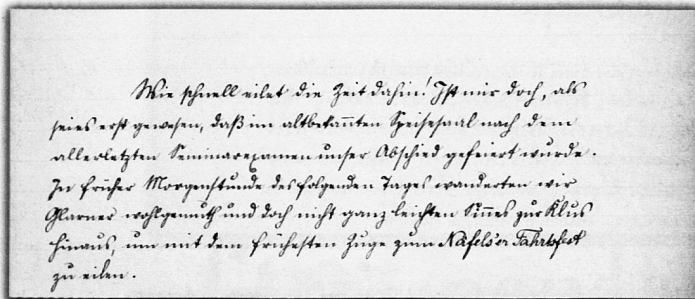 Wie schnell eilet die Zeit dahin! Ist mir doch, als
sei es erst gewesen, daß im altbekannten Speisesaal nach dem
allerletzten Seminarexamen unser Abschied gefeiert wurde.
In früher Morgenstunde des folgenden Tages wanderten wir
Glarner wohlgemuth und doch nicht ganz leichten Sinnes zur Klus
hinaus, um mit dem frühesten Zuge zum Näfelser Fahrtsfest
zu eilen.